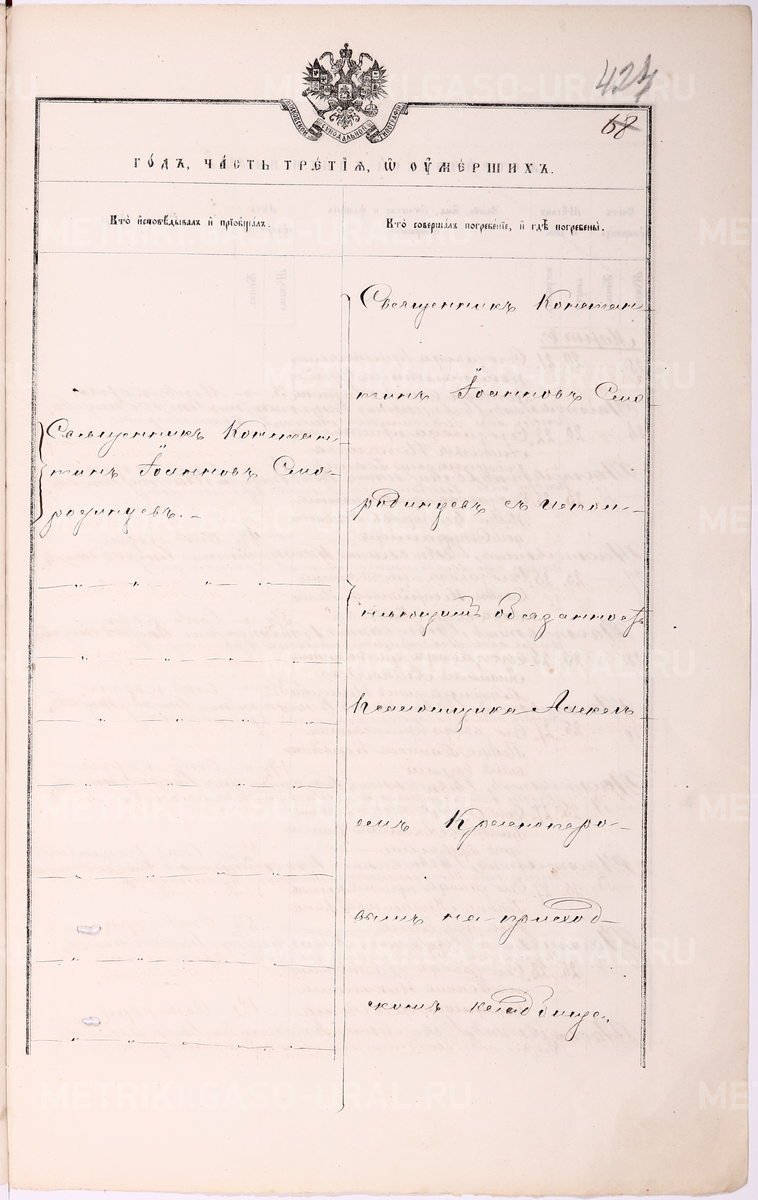 427
68
МОСКОВСКОЙ СѴНОДАЛЬНОЙ ТИПОГРАФІИ
ГО́ДЪ, ЧА́СТЬ ТРЕ́ТІѦ, Ѡ҆ ОУ҆МЕ́РШИХЪ.
Кто̀ и҆сповѣ́дывалъ и҆ прїѡбща́лъ.
Кто̀ соверша́лъ погребе́нїе, и҆ гдѣ̀ погребены̀.
Священникъ Констан-
тинъ Іоанновъ Смо-
родинцевъ.
Священникъ Констан-
тинъ Іоанновъ Смо-
родинцевъ съ испол-
няющимъ обязанность
Псаломщика Алексѣ-
емъ Красноперо-
вымъ на приход-
скомъ кладбище.
METRIKI.GASO-URAL.RU